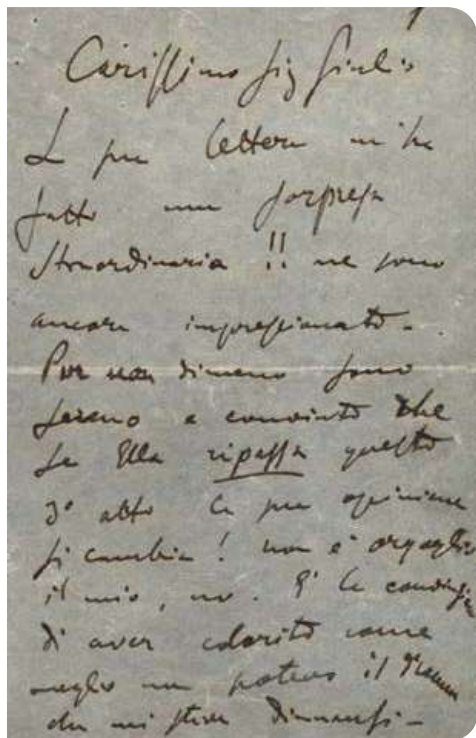 Carissimo Sig Giulio
La sua lettera mi ha
fatto una sorpresa
straordinaria !! ne sono
ancora impressionato -
Pur non dimeno sono
sereno e convinto che
se Ella ripassa questo
3º atto la sua opinione
si cambia ! non è orgoglio
il mio, no. E' la convinzione
di aver colorito come
meglio non potevo il dramma
che mi stava dinnanzi -